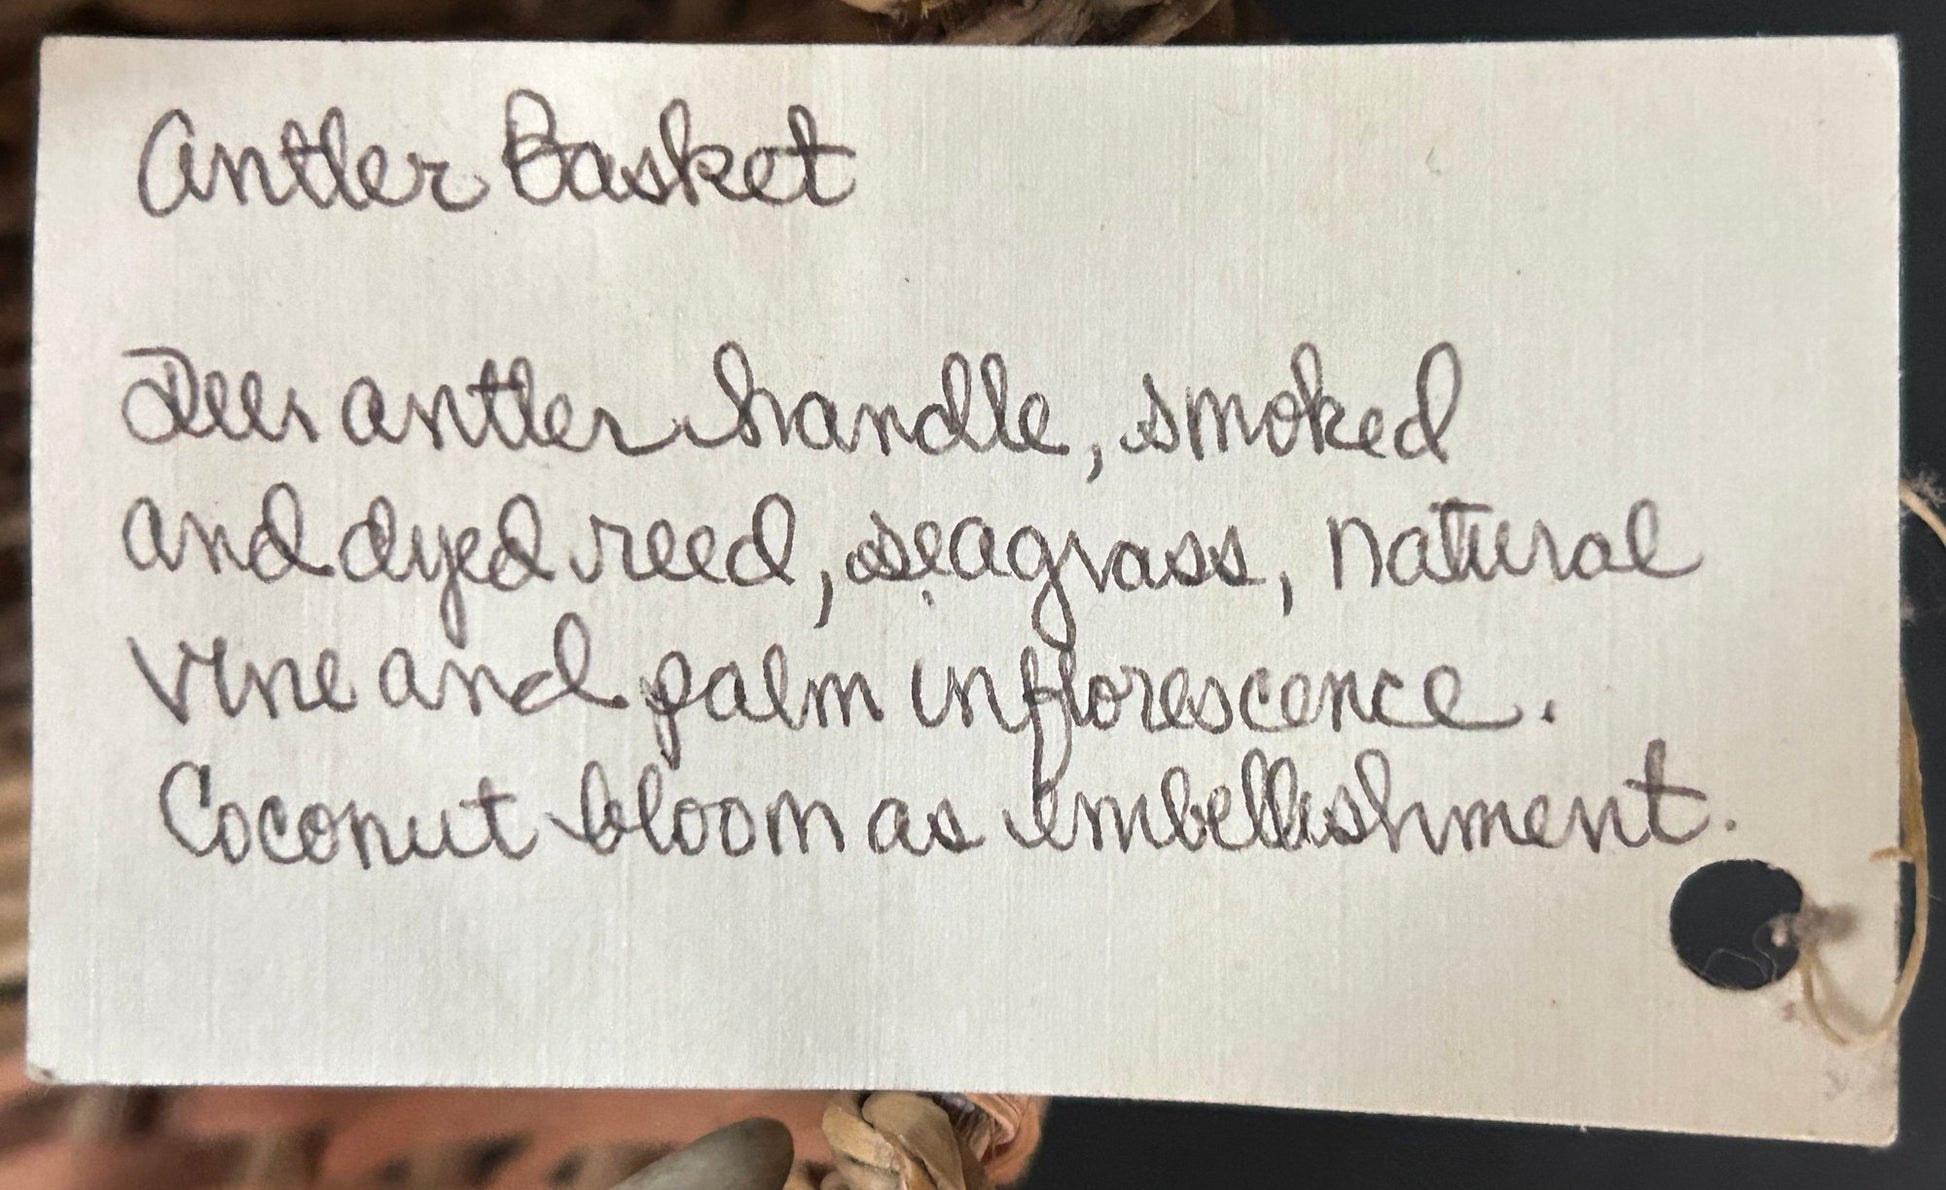 Antler Basket
Deer antler handle, smoked
and dyed reed, seagrass, natural
vine and palm inflorescence.
Coconut bloom as embellishment.